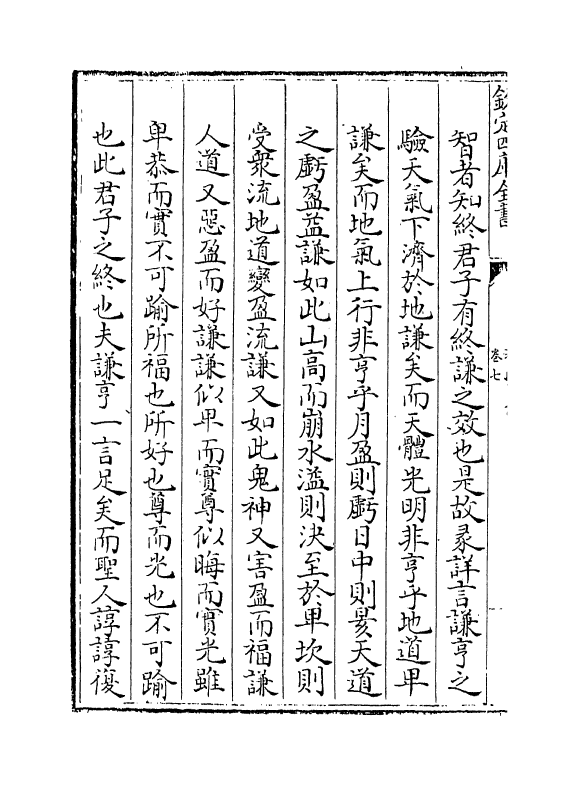 欽定四庫全書
卷七
智者知終君子有終謙之效也是故彖詳言謙亨之
驗天氣下濟於地謙矣而天體光明非亨乎地道卑
謙矣而地氣上行非亨乎月盈則虧日中則昃天道
之虧盈益謙如此山高而崩水溢則決至於卑坎則
受衆流地道變盈流謙又如此鬼神又害盈而福謙
人道又惡盈而好謙謙似卑而實尊似晦而實光雖
卑恭而實不可踰所福也所好也尊而光也不可踰
也此君子之終也夫謙亨一言足矣而聖人諄諄復